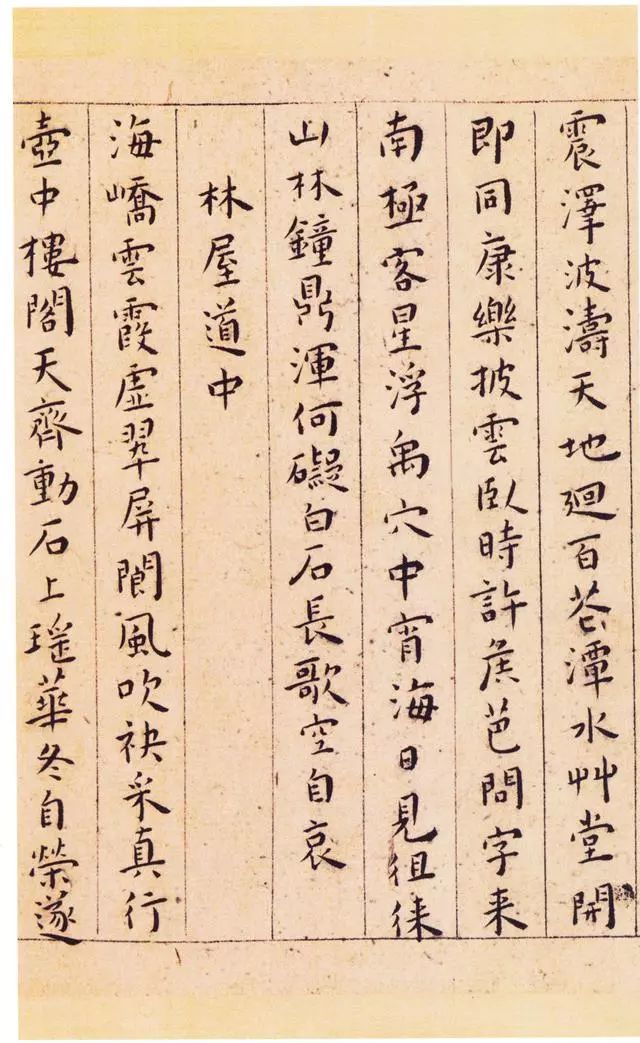 震澤波濤天地廻百花潭水艸堂開
即同康樂披雲臥時許矦芭問字来
南極客星浮禹穴中宵海日見徂徠
山林鐘鼎渾何礙白石長歌空自哀
林屋道中
海嶠雲霞虛翠屏閬風吹袂采真行
壺中樓閣天齊動石上瑤華冬自榮遂